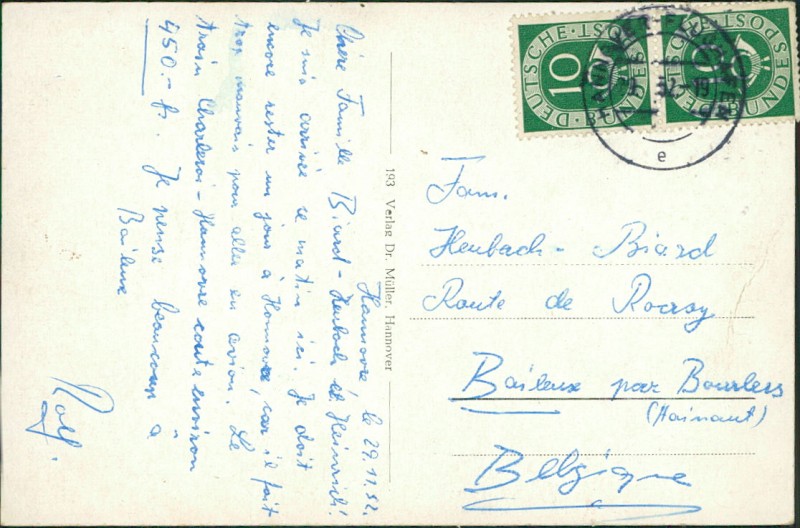 Hannovre le 29.11.52.
Chère Famille Biard-Heubach et Heinrich!
Je suis arrivée ce matin ici. Je dois
encore rester un jour à Hannovre, car il fait
trop mauvais pour aller en avion. Le
train Charleroi - Hannovre coute environ
450.- fr. Je pense beaucoup à
Baileux
Rolf.
193 Verlag Dr. Müller, Hannover
DEUTSCHE BUNDESPOST
10
DEUTSCHE BUNDESPOST
10
e
Fam.
Heubach - Biard
Route de
Baileux par Bourlers
(Hainaut)
Belgique